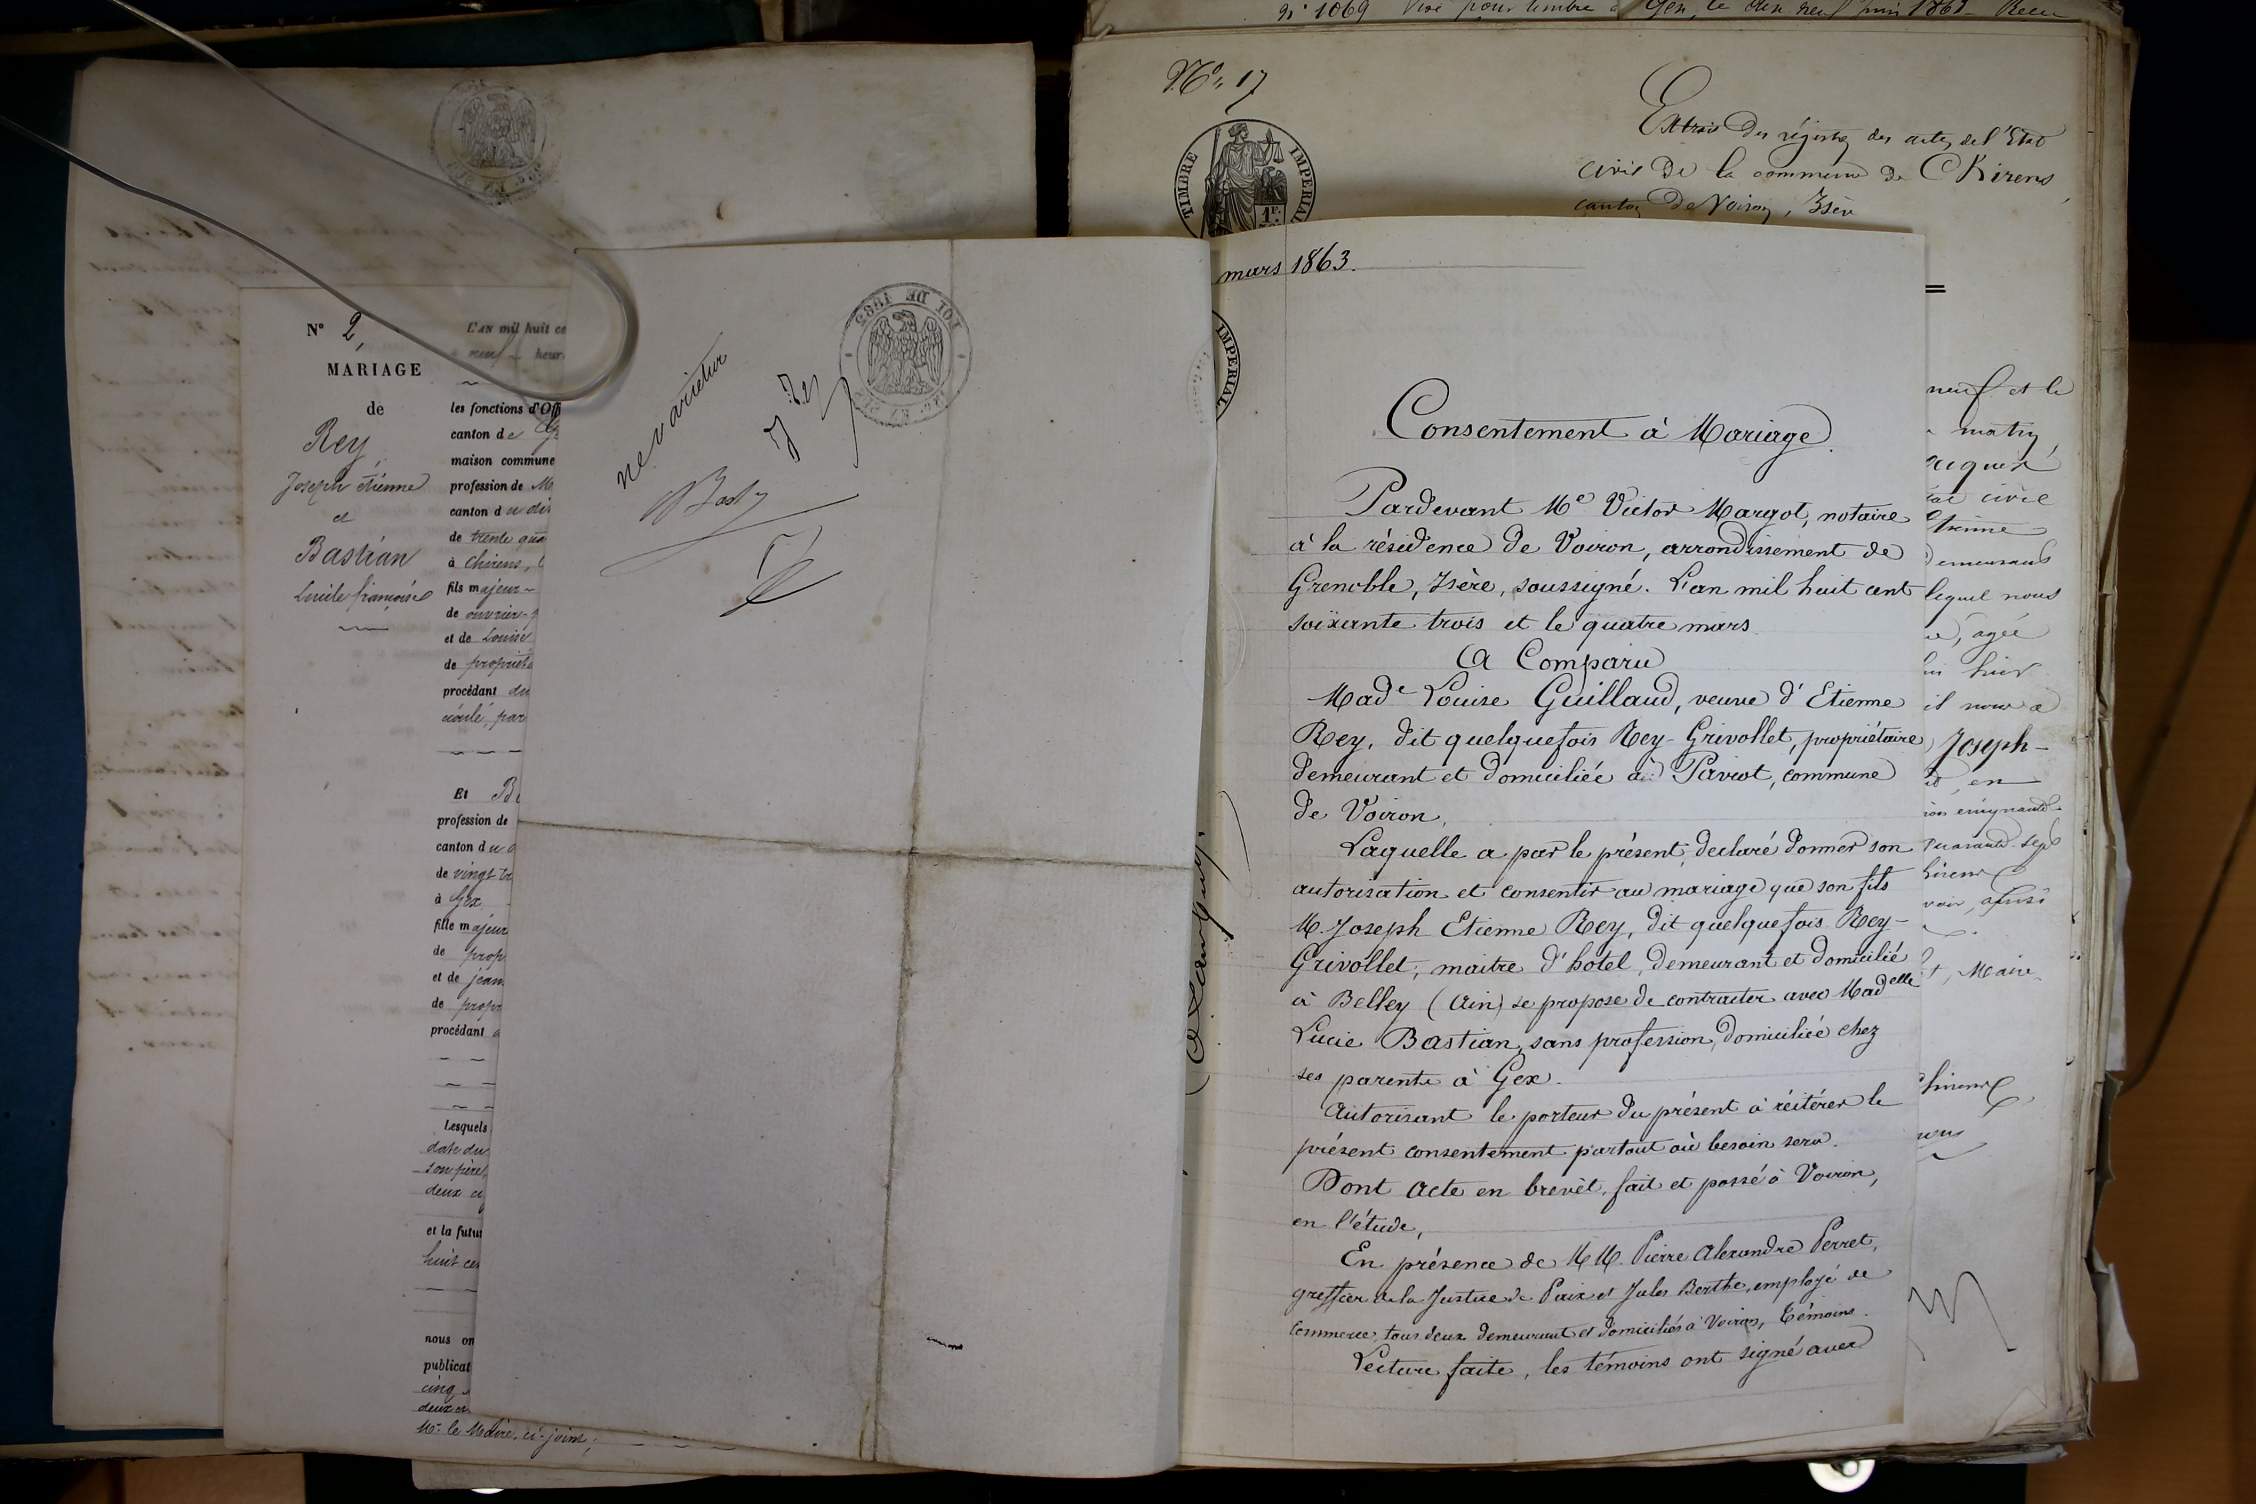 N° 1069
N° 17
Extrait des régistres des actes de l'Etat
civil de la commune de Chirens
canton de Voiron, Isère
TIMBRE IMPERIAL
1F.
N° 2,
MARIAGE
de
Rey
Joseph étienne
et
Bastian
Lucile françoise
L'AN mil huit ce
heur
les fonctions d'Off
canton de
maison commune
profession de M
canton du
de trente qua
à Chirens,
fils majeur
de ouvrier
et de Louise
de propriét
procédant du
Et B
profession de
canton du
de vingt
à Gex
fille majeur
de prop
et de jean
de propr
procédant
Lesquels
date du
son père,
deux
et la futur
huit cen
nous on
publicat
cinq
deux
Mr le Maire, ci-joint,
ne varietur
LOI DE 1862
mars 1863.
IMPERIAL
Consentement à Mariage.
Pardevant Me Victor Margot, notaire
à la résidence de Voiron, arrondissement de
Grenoble, Isère, soussigné. L'an mil huit cent
soixante trois et le quatre mars
A Comparu
Made Louise Guillaud, veuve d'Etienne
Rey, dit quelquefois Rey-Grivollet, propriétaire
demeurant et domiciliée à Paviot, commune
de Voiron,
Laquelle a par le présent, declaré donner son
autorisation et consentir au mariage que son fils
M. Joseph Etienne Rey, dit quelquefois Rey-
Grivollet, maitre d'hotel, demeurant et domicilié
à Belley (Ain) se propose de contracter avec Madelle
Lucie Bastian, sans profession, domiciliée chez
ses parents à Gex.
Autorisant le porteur du présent à réitérer le
présent consentement partout où besoin sera.
Dont Acte en brevêt, fait et passé à Voiron,
en l'étude,
En présence de MM. Pierre Alexandre Perret,
greffier de la Justice de Paix et Jules Berthe, employé de
Commerce, tous deux demeurant et domiciliés à Voiron, témoins.
Lecture faite, les témoins ont signé avec
neuf et le
civil
lequel nous
agée
hier
Joseph-
en
quarante-sept
ainsi
Maire